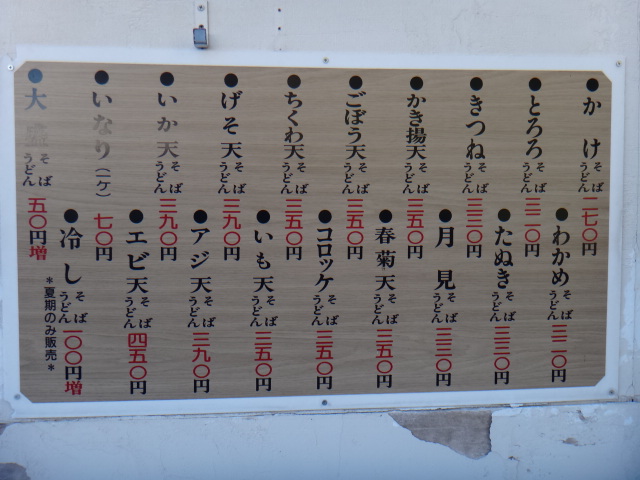 ●かけそばうどん二七〇円
●わかめそばうどん三二〇円
●とろろそばうどん三二〇円
●たぬきそばうどん三三〇円
●きつねそばうどん三三〇円
●月見そばうどん三三〇円
●かき揚天そばうどん三五〇円
●春菊天そばうどん三五〇円
●ごぼう天そばうどん三五〇円
●コロッケそばうどん三五〇円
●ちくわ天そばうどん三五〇円
●いも天そばうどん三五〇円
●げそ天そばうどん三九〇円
●アジ天そばうどん三九〇円
●いか天そばうどん三九〇円
●エビ天そばうどん四五〇円
●いなり(一ケ)七〇円
●冷しそばうどん一〇〇円増
*夏期のみ販売*
●大盛そばうどん五〇円増